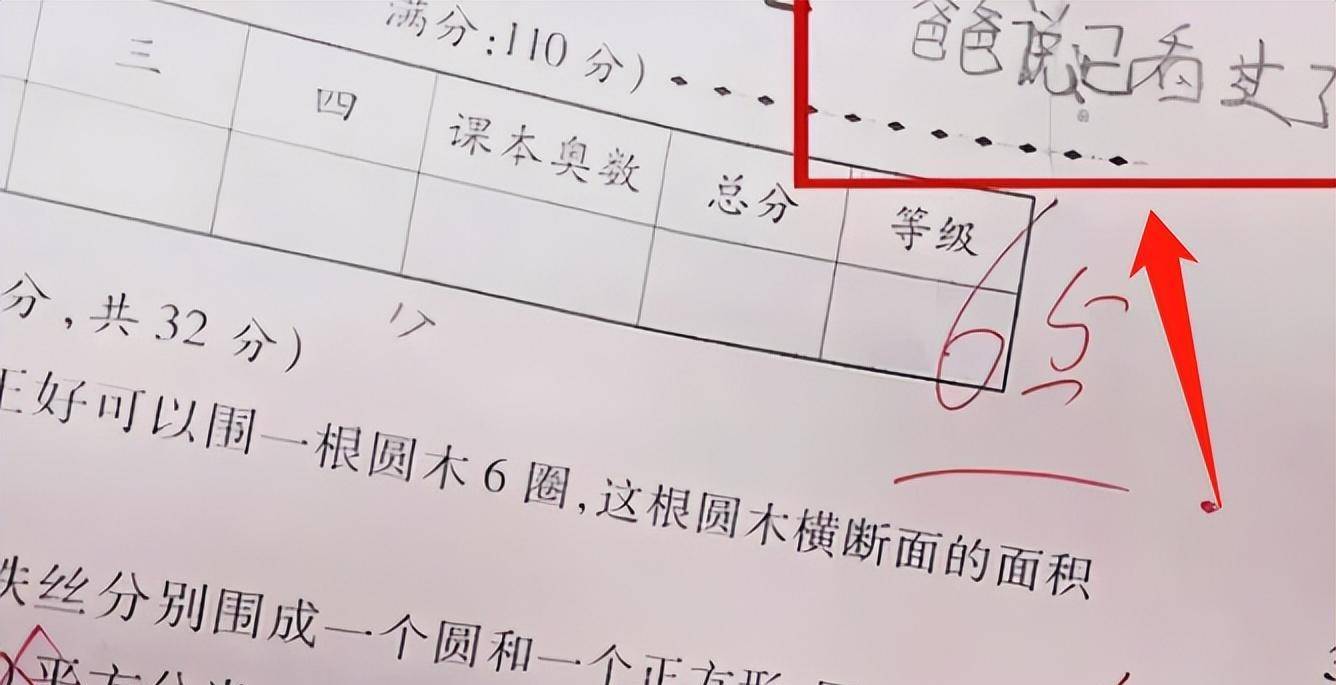 满分:110分)
爸爸说已看过了
三 四 课本奥数 总分 等级
65
分,共32分)
正好可以围一根圆木6圈,这根圆木横断面的面积
铁丝分别围成一个圆和一个正方形
平方分米